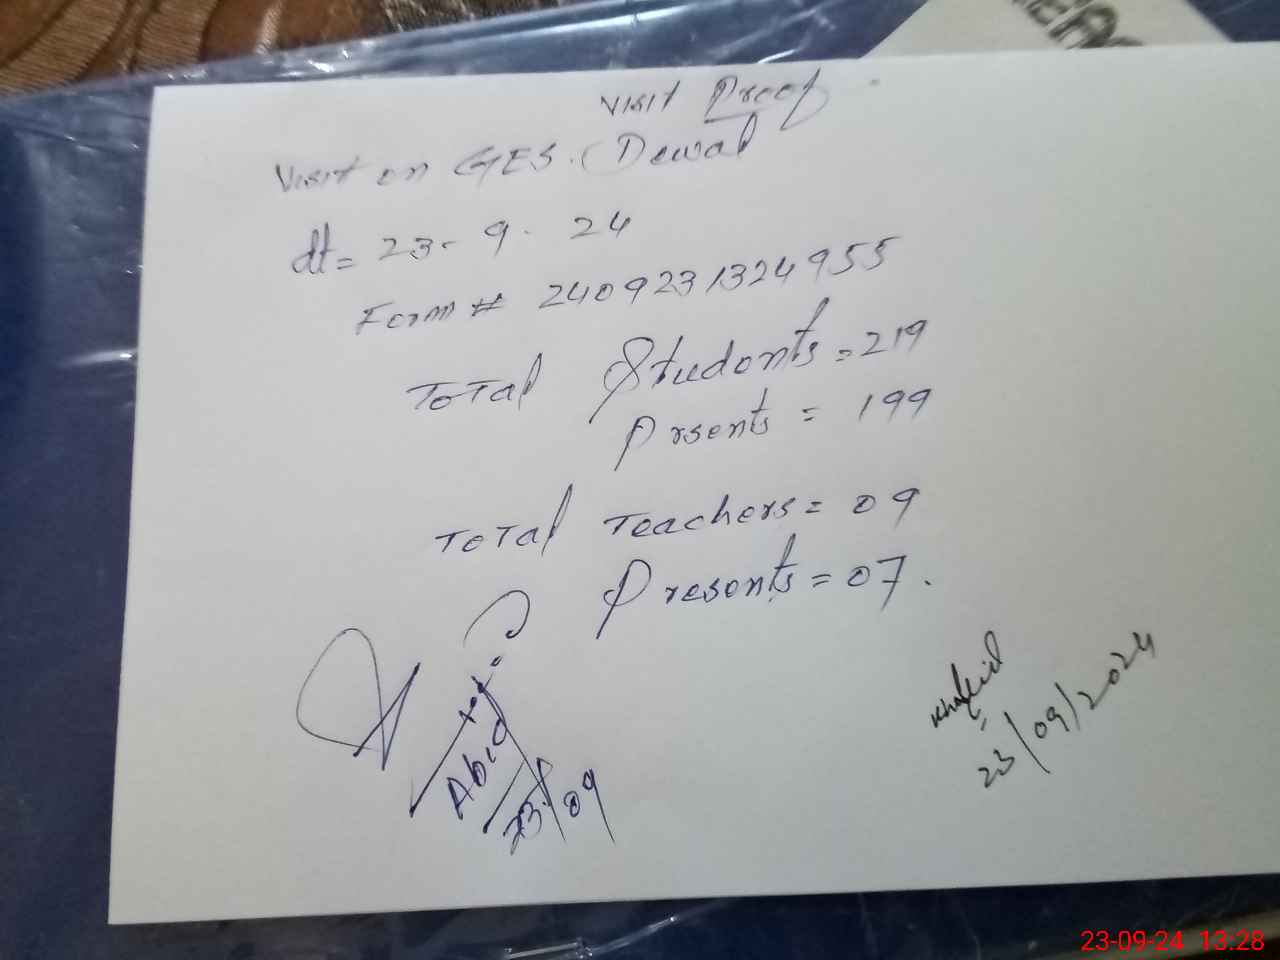 Visit Proof
Visit on GES. Dewal
dt= 23- 9. 24
Form # 2409231324955
Total Students = 219
Prsents = 199
Total Teachers = 09
Presents = 07.
Abid
23/09
Khalid
23/09/2024
23-09-24 13:28